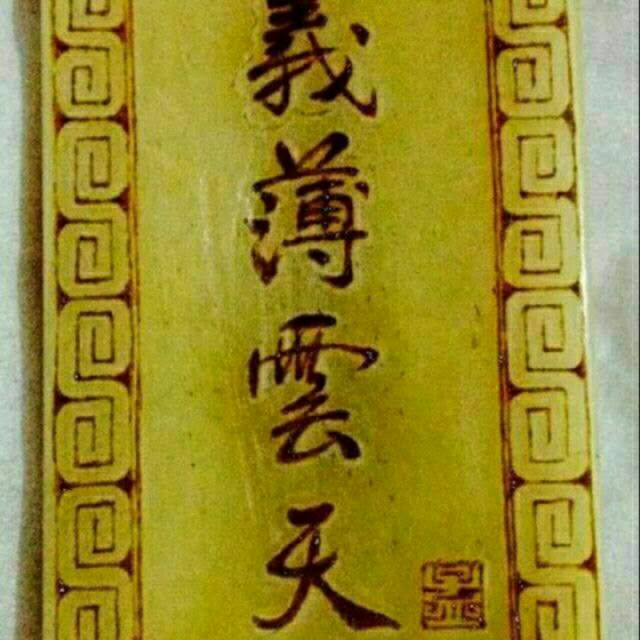 義薄雲天